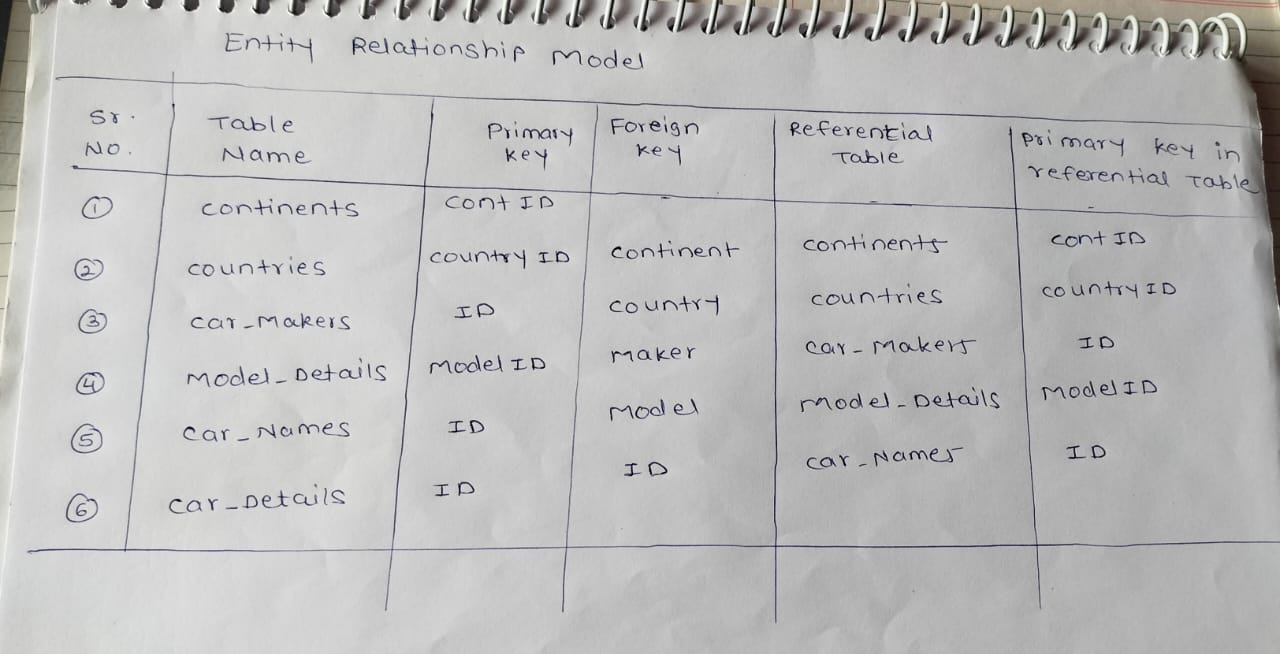 Entity Relationship Model
Sr. No. Table Name Primary Key Foreign Key Referential Table Primary key in referential Table
① continents cont ID - - -
② countries country ID continent continents cont ID
③ car_Makers ID country countries country ID
④ Model_Details Model ID maker car_Makers ID
⑤ car_Names ID Model Model_Details Model ID
⑥ car_Details ID ID car_Names ID